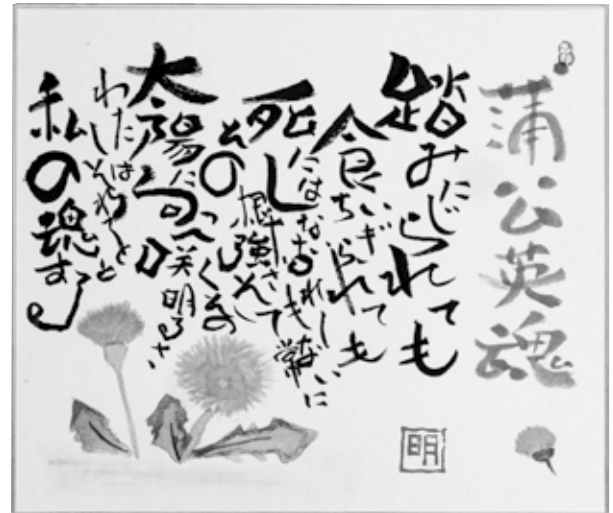 蒲公英魂
踏みにじられても
食いちぎられても
死にはしない
枯れもしない
その根強さ
そして常に
太陽に向って
くその明るさ
わたしはそれを
私の魂とする
明